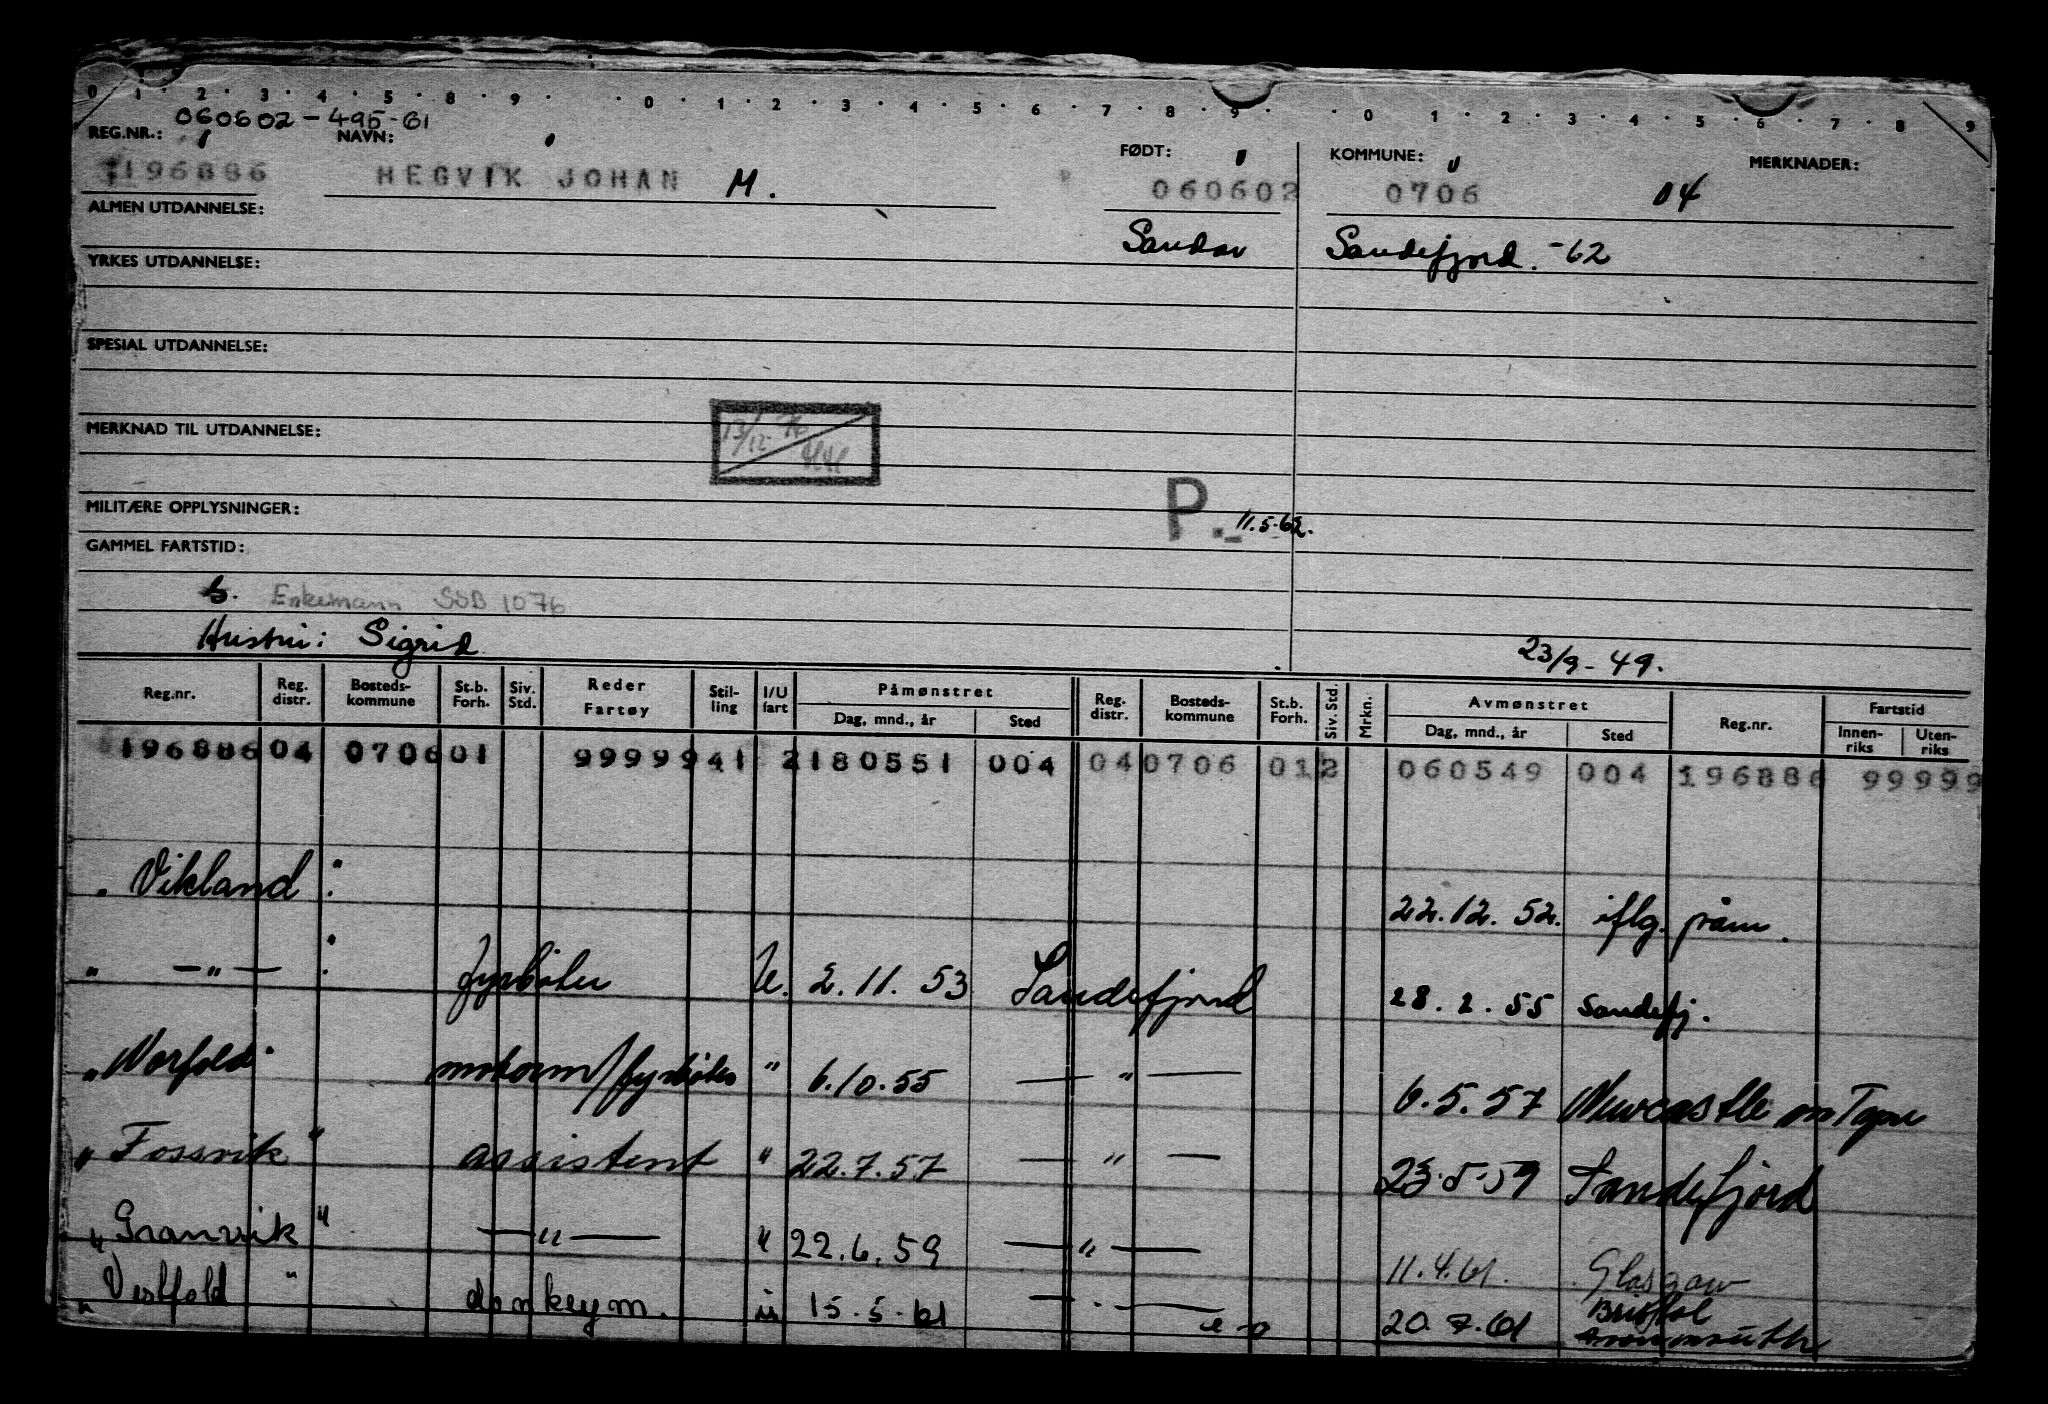 0 · 1 · 2 · 3 · 4 · 5 · 8 · 9 · · 0 · 1 · 2 · 3 · 4 · 5 · 6 · 7 · 8 · 9 · · 0 · 1 · 2 · 3 · 4 · 5 · 6 · 7 · 8 · 9
060602-495-61
REG.NR.: NAVN: FØDT: KOMMUNE: MERKNADER:
196886 HEGVIK JOHAN M. 060602 0706 04
ALMEN UTDANNELSE: Sandar Sandefjord. -62
YRKES UTDANNELSE:
SPESIAL UTDANNELSE:
MERKNAD TIL UTDANNELSE: 13/12-76
MILITÆRE OPPLYSNINGER: P. 11.5.62.
GAMMEL FARTSTID:
Enkemann SOB 1076
Hustru: Sigrid 23/9-49.
Reg.nr. Reg. distr. Bosteds- kommune St.b. Forh. Siv. Std. Reder Fartøy Stil- ling I/U fart Påmønstret Dag, mnd., år Sted Reg. distr. Bosteds- kommune St.b. Forh. Siv. Std. Mrkn. Avmønstret Dag, mnd., år Sted Reg.nr. Fartstid Innen- riks Uten- riks
196886 04 0706 01 99999 41 2 180551 004 04 0706 01 2 060549 004 196886 99999
"Vikland" 22.12.52. iflg. påm.
" —"— " fyrbøter U. 2.11.53 Sandefjord 28.2.55 Sandefj.
"Norfold" motorm/fyrbøter " 6.10.55 —"— 6.5.57 Newcastle on Tyne
"Fossvik" assistent " 22.7.57 —"— 23.5.59 Sandefjord
"Granvik" —"— " 22.6.59 —"— 11.4.61. Glasgow
"Vestfold" donkeym. " 15.5.61 —"— 20.7.61 Bristol